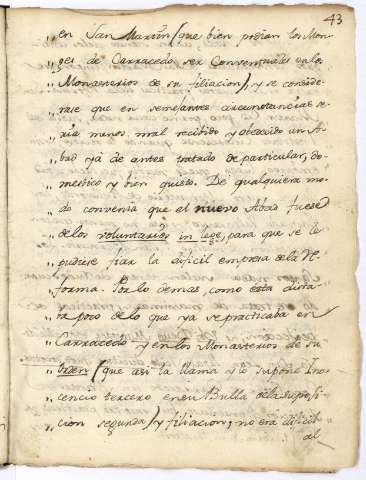 43
„ en San Martin (que bien podian los Mon-
„ ges de Carracedo ser Conventuales en los
„ Monasterios de su filiacion), y se conside-
„ rase que en semejantes circunstancias se-
„ ria menos mal recibido y obedecido un A-
„ bad ya de antes tratado de particular, do-
„ mestico y bien quisto. De qualquiera mo-
„ do convenia que el nuevo Abad fuese
„ de los voluntarios in lege, para que se le
„ pudiese fiar la dificil empresa de la Re-
„ forma. Por lo demas como esta dista-
„ ra poco de lo que ya se practicaba en
„ Carracedo y en los Monasterios de su
„ Orden (que asi la llama y lo supone Ino-
„ cencio tercero en su Bulla de la suposi-
„ cion segunda) y filiacion, no era dificil
al